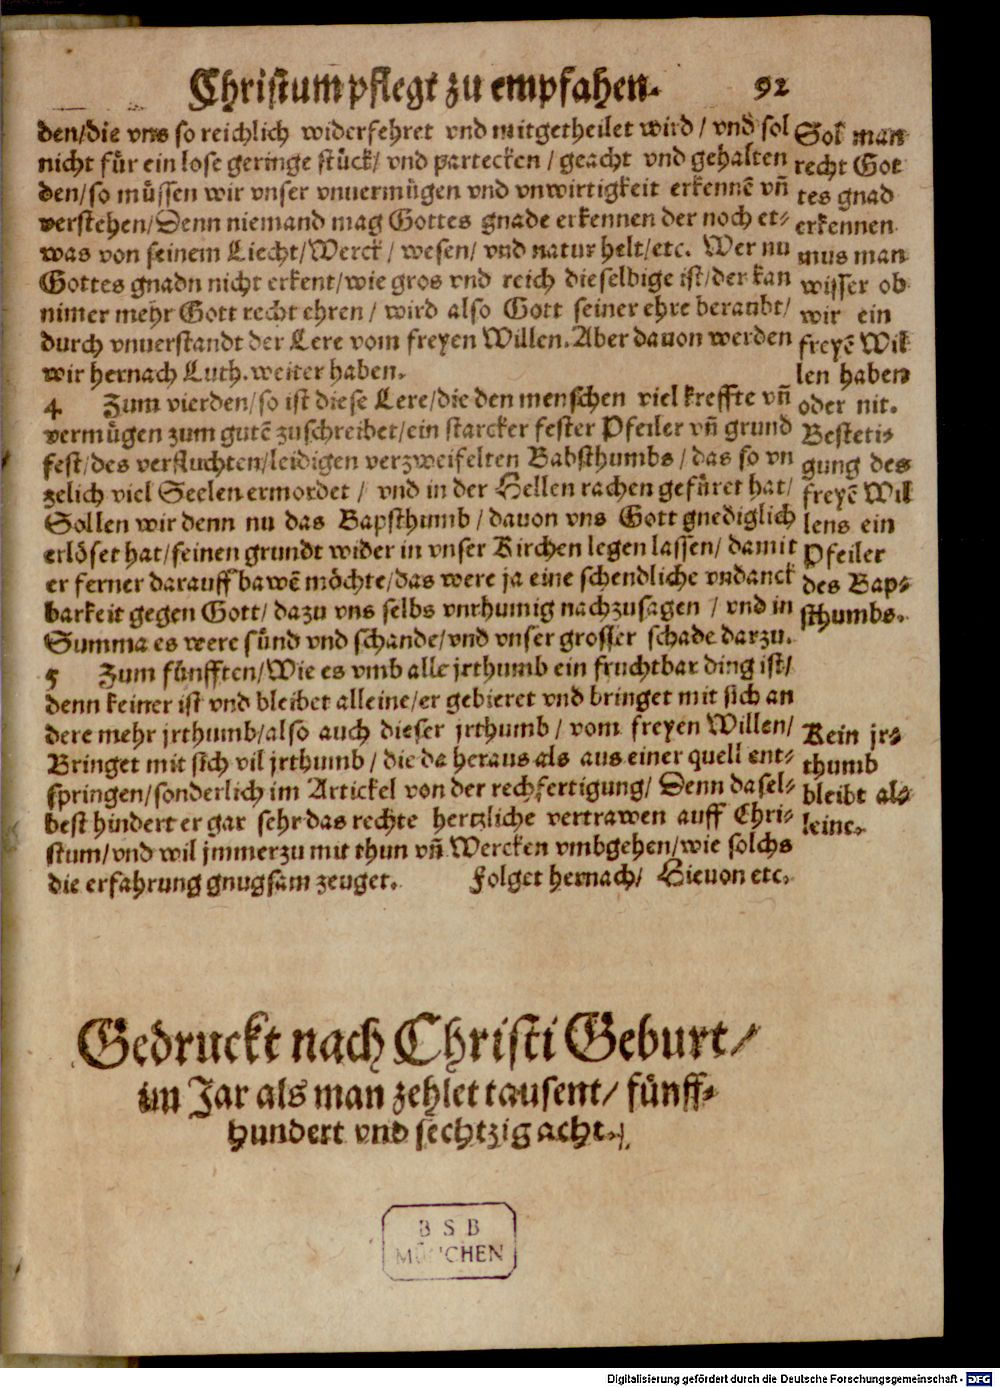 Christum pflegt zu empfahen. 92
den/die vns so reichlich widerfehret vnd mitgetheilet wird/ vnd sol
nicht für ein lose geringe stück/ vnd partecken/ geacht vnd gehalten
den/so müssen wir vnser vnuermügen vnd vnwirtigkeit erkennē vñ
verstehen/Denn niemand mag Gottes gnade erkennen der noch et-
was von seinem Liecht/Werck/ wesen/ vnd natur helt/etc. Wer nu
Gottes gnadn nicht erkent/wie gros vnd reich dieselbige ist/der kan
nimer mehr Gott recht ehren/ wird also Gott seiner ehre beraubt/
durch vnuerstandt der Lere vom freyen Willen. Aber dauon werden
wir hernach Luth. weiter haben.
4 Zum vierden/so ist diese Lere/die den menschen viel kreffte vñ
vermügen zum gutē zuschreibet/ein starcker fester Pfeiler vñ grund
fest/des verfluchten/leidigen verzweifelten Babsthumbs/ das so vn
zelich viel Seelen ermordet/ vnd in der Hellen rachen gefüret hat/
Sollen wir denn nu das Bapsthumb/ dauon vns Gott gnediglich
erlöset hat/seinen grundt wider in vnser Kirchen legen lassen/ damit
er ferner darauff bawē möchte/das were ja eine schendliche vndanck
barkeit gegen Gott/ dazu vns selbs vnrhumig nachzusagen/ vnd in
Summa es were sünd vnd schande/vnd vnser grosser schade darzu.
5 Zum fünfften/Wie es vmb alle jrthumb ein fruchtbar ding ist/
denn keiner ist vnd bleibet alleine/er gebieret vnd bringet mit sich an
dere mehr jrthumb/also auch dieser jrthumb/ vom freyen Willen/
Bringet mit sich vil jrthumb/ die da heraus als aus einer quell ent-
springen/sonderlich im Artickel von der rechfertigung/ Denn dasel-
best hindert er gar sehr das rechte hertzliche vertrawen auff Chri-
stum/vnd wil jmmerzu mit thun vñ Wercken vmbgehen/wie solchs
die erfahrung gnugsam zeuget. Folget hernach/ Hieuon etc.
Sol man
recht Got
tes gnad
erkennen
mus man
wisser ob
wir ein
freyē Wil
len haben
oder nit.
Besteti-
gung des
freyē Wil
lens ein
Pfeiler
des Bap-
sthumbs.
Kein jr-
thumb
bleibt al-
leine.
Gedruckt nach Christi Geburt/
im Jar als man zehlet tausent/ fünff-
hundert vnd sechtzig acht.
B S B
MÜNCHEN
Digitalisierung gefördert durch die Deutsche Forschungsgemeinschaft - DFG